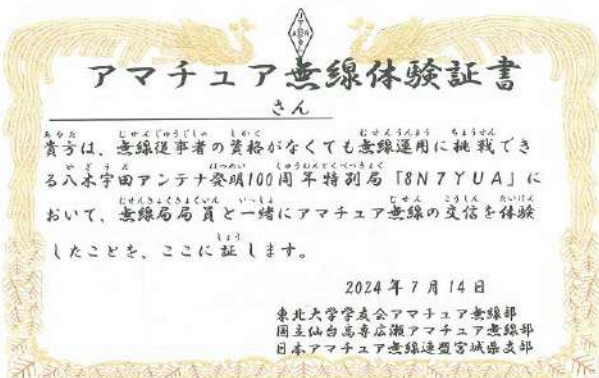 アマチュア無線体験証書
さん
貴方は、無線従事者の資格がなくても無線運用に挑戦でき
る八木宇田アンテナ発明100周年特別局「8N7YUA」に
おいて、無線局局員と一緒にアマチュア無線の交信を体験
したことを、ここに証します。
2024年7月14日
東北大学学友会アマチュア無線部
国立仙台高専広瀬アマチュア無線部
日本アマチュア無線連盟宮城県支部